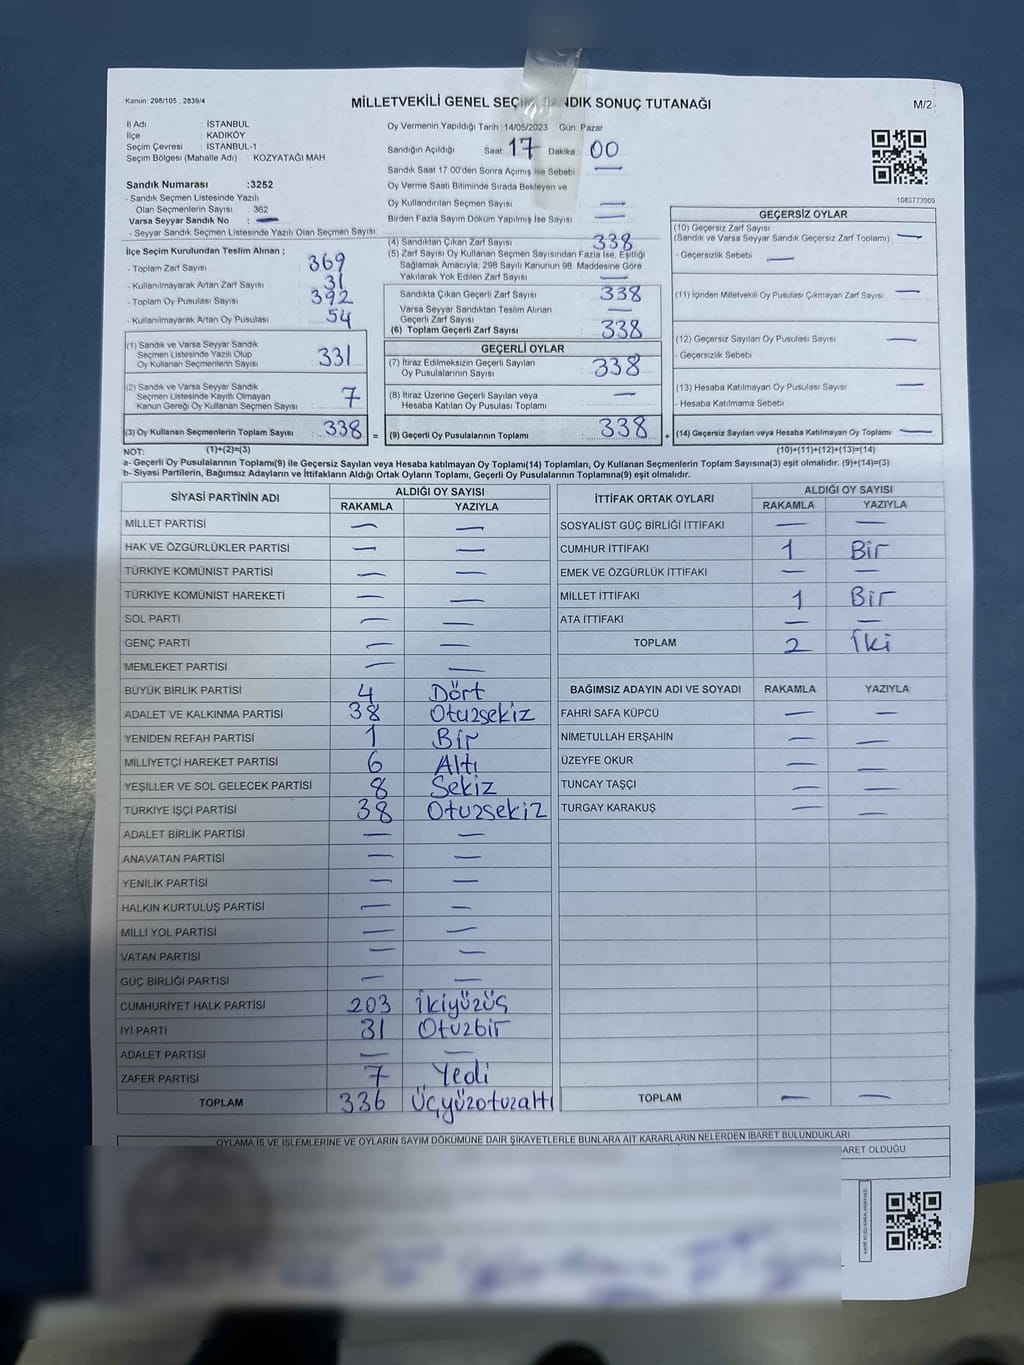 Kanun: 298/105 , 2839/4
MİLLETVEKİLİ GENEL SEÇİM SANDIK SONUÇ TUTANAĞI
M/2
İl Adı : İSTANBUL
İlçe : KADIKÖY
Seçim Çevresi : İSTANBUL-1
Seçim Bölgesi (Mahalle Adı) : KOZYATAĞI MAH.
Sandık Numarası :3252
- Sandık Seçmen Listesinde Yazılı
Olan Seçmenlerin Sayısı : 362
Varsa Seyyar Sandık No : —
- Seyyar Sandık Seçmen Listesinde Yazılı Olan Seçmen Sayısı
Oy Vermenin Yapıldığı Tarih :14/05/2023 Gün: Pazar
Sandığın Açıldığı Saat 17 Dakika 00
Sandık Saat 17:00'den Sonra Açımış İse Sebebi —
Oy Verme Saati Bitiminde Sırada Bekleyen ve
Oy Kullandırılan Seçmen Sayısı —
Birden Fazla Sayım Döküm Yapılmış İse Sayısı —
1083773909
İlçe Seçim Kurulundan Teslim Alınan ;
- Toplam Zarf Sayısı 369
- Kullanılmayarak Artan Zarf Sayısı 31
- Toplam Oy Pusulası Sayısı 392
- Kullanılmayarak Artan Oy Pusulası 54
(1) Sandık ve Varsa Seyyar Sandık
Seçmen Listesinde Yazılı Olup
Oy Kullanan Seçmenlerin Sayısı 331
(2) Sandık ve Varsa Seyyar Sandık
Seçmen Listesinde Kayıtlı Olmayan
Kanun Gereği Oy Kullanan Seçmen Sayısı 7
(3) Oy Kullanan Seçmenlerin Toplam Sayısı 338 =
(4) Sandıktan Çıkan Zarf Sayısı 338
(5) Zarf Sayısı Oy Kullanan Seçmen Sayısından Fazla İse, Eşitliği
Sağlamak Amacıyla, 298 Sayılı Kanunun 98. Maddesine Göre
Yakılarak Yok Edilen Zarf Sayısı —
Sandıkta Çıkan Geçerli Zarf Sayısı 338
Varsa Seyyar Sandıktan Teslim Alınan
Geçerli Zarf Sayısı —
(6) Toplam Geçerli Zarf Sayısı 338
GEÇERLİ OYLAR
(7) İtiraz Edilmeksizin Geçerli Sayılan
Oy Pusulalarının Sayısı 338
(8) İtiraz Üzerine Geçerli Sayılan veya
Hesaba Katılan Oy Pusulası Toplamı —
(9) Geçerli Oy Pusulalarının Toplamı 338 +
GEÇERSİZ OYLAR
(10) Geçersiz Zarf Sayısı
(Sandık ve Varsa Seyyar Sandık Geçersiz Zarf Toplamı) —
- Geçersizlik Sebebi —
(11) İçinden Milletvekili Oy Pusulası Çıkmayan Zarf Sayısı —
(12) Geçersiz Sayılan Oy Pusulası Sayısı —
- Geçersizlik Sebebi
(13) Hesaba Katılmayan Oy Pusulası Sayısı —
- Hesaba Katılmama Sebebi
(14) Geçersiz Sayılan veya Hesaba Katılmayan Oy Toplamı —
NOT: (1)+(2)=(3) (10)+(11)+(12)+(13)=(14)
a- Geçerli Oy Pusulalarının Toplamı(9) ile Geçersiz Sayılan veya Hesaba katılmayan Oy Toplamı(14) Toplamları, Oy Kullanan Seçmenlerin Toplam Sayısına(3) eşit olmalıdır. (9)+(14)=(3)
b- Siyasi Partilerin, Bağımsız Adayların ve İttifakların Aldığı Ortak Oyların Toplamı, Geçerli Oy Pusulalarının Toplamına(9) eşit olmalıdır.
SİYASİ PARTİNİN ADI ALDIĞI OY SAYISI
RAKAMLA YAZIYLA
MİLLET PARTİSİ — —
HAK VE ÖZGÜRLÜKLER PARTİSİ — —
TÜRKİYE KOMÜNİST PARTİSİ — —
TÜRKİYE KOMÜNİST HAREKETİ — —
SOL PARTİ — —
GENÇ PARTİ — —
MEMLEKET PARTİSİ — —
BÜYÜK BİRLİK PARTİSİ 4 Dört
ADALET VE KALKINMA PARTİSİ 38 Otuzsekiz
YENİDEN REFAH PARTİSİ 1 Bir
MİLLİYETÇİ HAREKET PARTİSİ 6 Altı
YEŞİLLER VE SOL GELECEK PARTİSİ 8 Sekiz
TÜRKİYE İŞÇİ PARTİSİ 38 Otuzsekiz
ADALET BİRLİK PARTİSİ — —
ANAVATAN PARTİSİ — —
YENİLİK PARTİSİ — —
HALKIN KURTULUŞ PARTİSİ — —
MİLLİ YOL PARTİSİ — —
VATAN PARTİSİ — —
GÜÇ BİRLİĞİ PARTİSİ — —
CUMHURİYET HALK PARTİSİ 203 İkiyüzüç
İYİ PARTİ 31 Otuzbir
ADALET PARTİSİ — —
ZAFER PARTİSİ 7 Yedi
TOPLAM 336 Üçyüzotuzaltı
İTTİFAK ORTAK OYLARI ALDIĞI OY SAYISI
RAKAMLA YAZIYLA
SOSYALİST GÜÇ BİRLİĞİ İTTİFAKI — —
CUMHUR İTTİFAKI 1 Bir
EMEK VE ÖZGÜRLÜK İTTİFAKI — —
MİLLET İTTİFAKI 1 Bir
ATA İTTİFAKI — —
TOPLAM 2 İki
BAĞIMSIZ ADAYIN ADI VE SOYADI RAKAMLA YAZIYLA
FAHRİ SAFA KÜPCÜ — —
NİMETULLAH ERŞAHİN — —
ÜZEYFE OKUR — —
TUNCAY TAŞÇI — —
TURGAY KARAKUŞ — —
TOPLAM — —
OYLAMA İŞ VE İŞLEMLERİNE VE OYLARIN SAYIM DÖKÜMÜNE DAİR ŞİKAYETLERLE BUNLARA AİT KARARLARIN NELERDEN İBARET BULUNDUKLARI
OLDUĞU